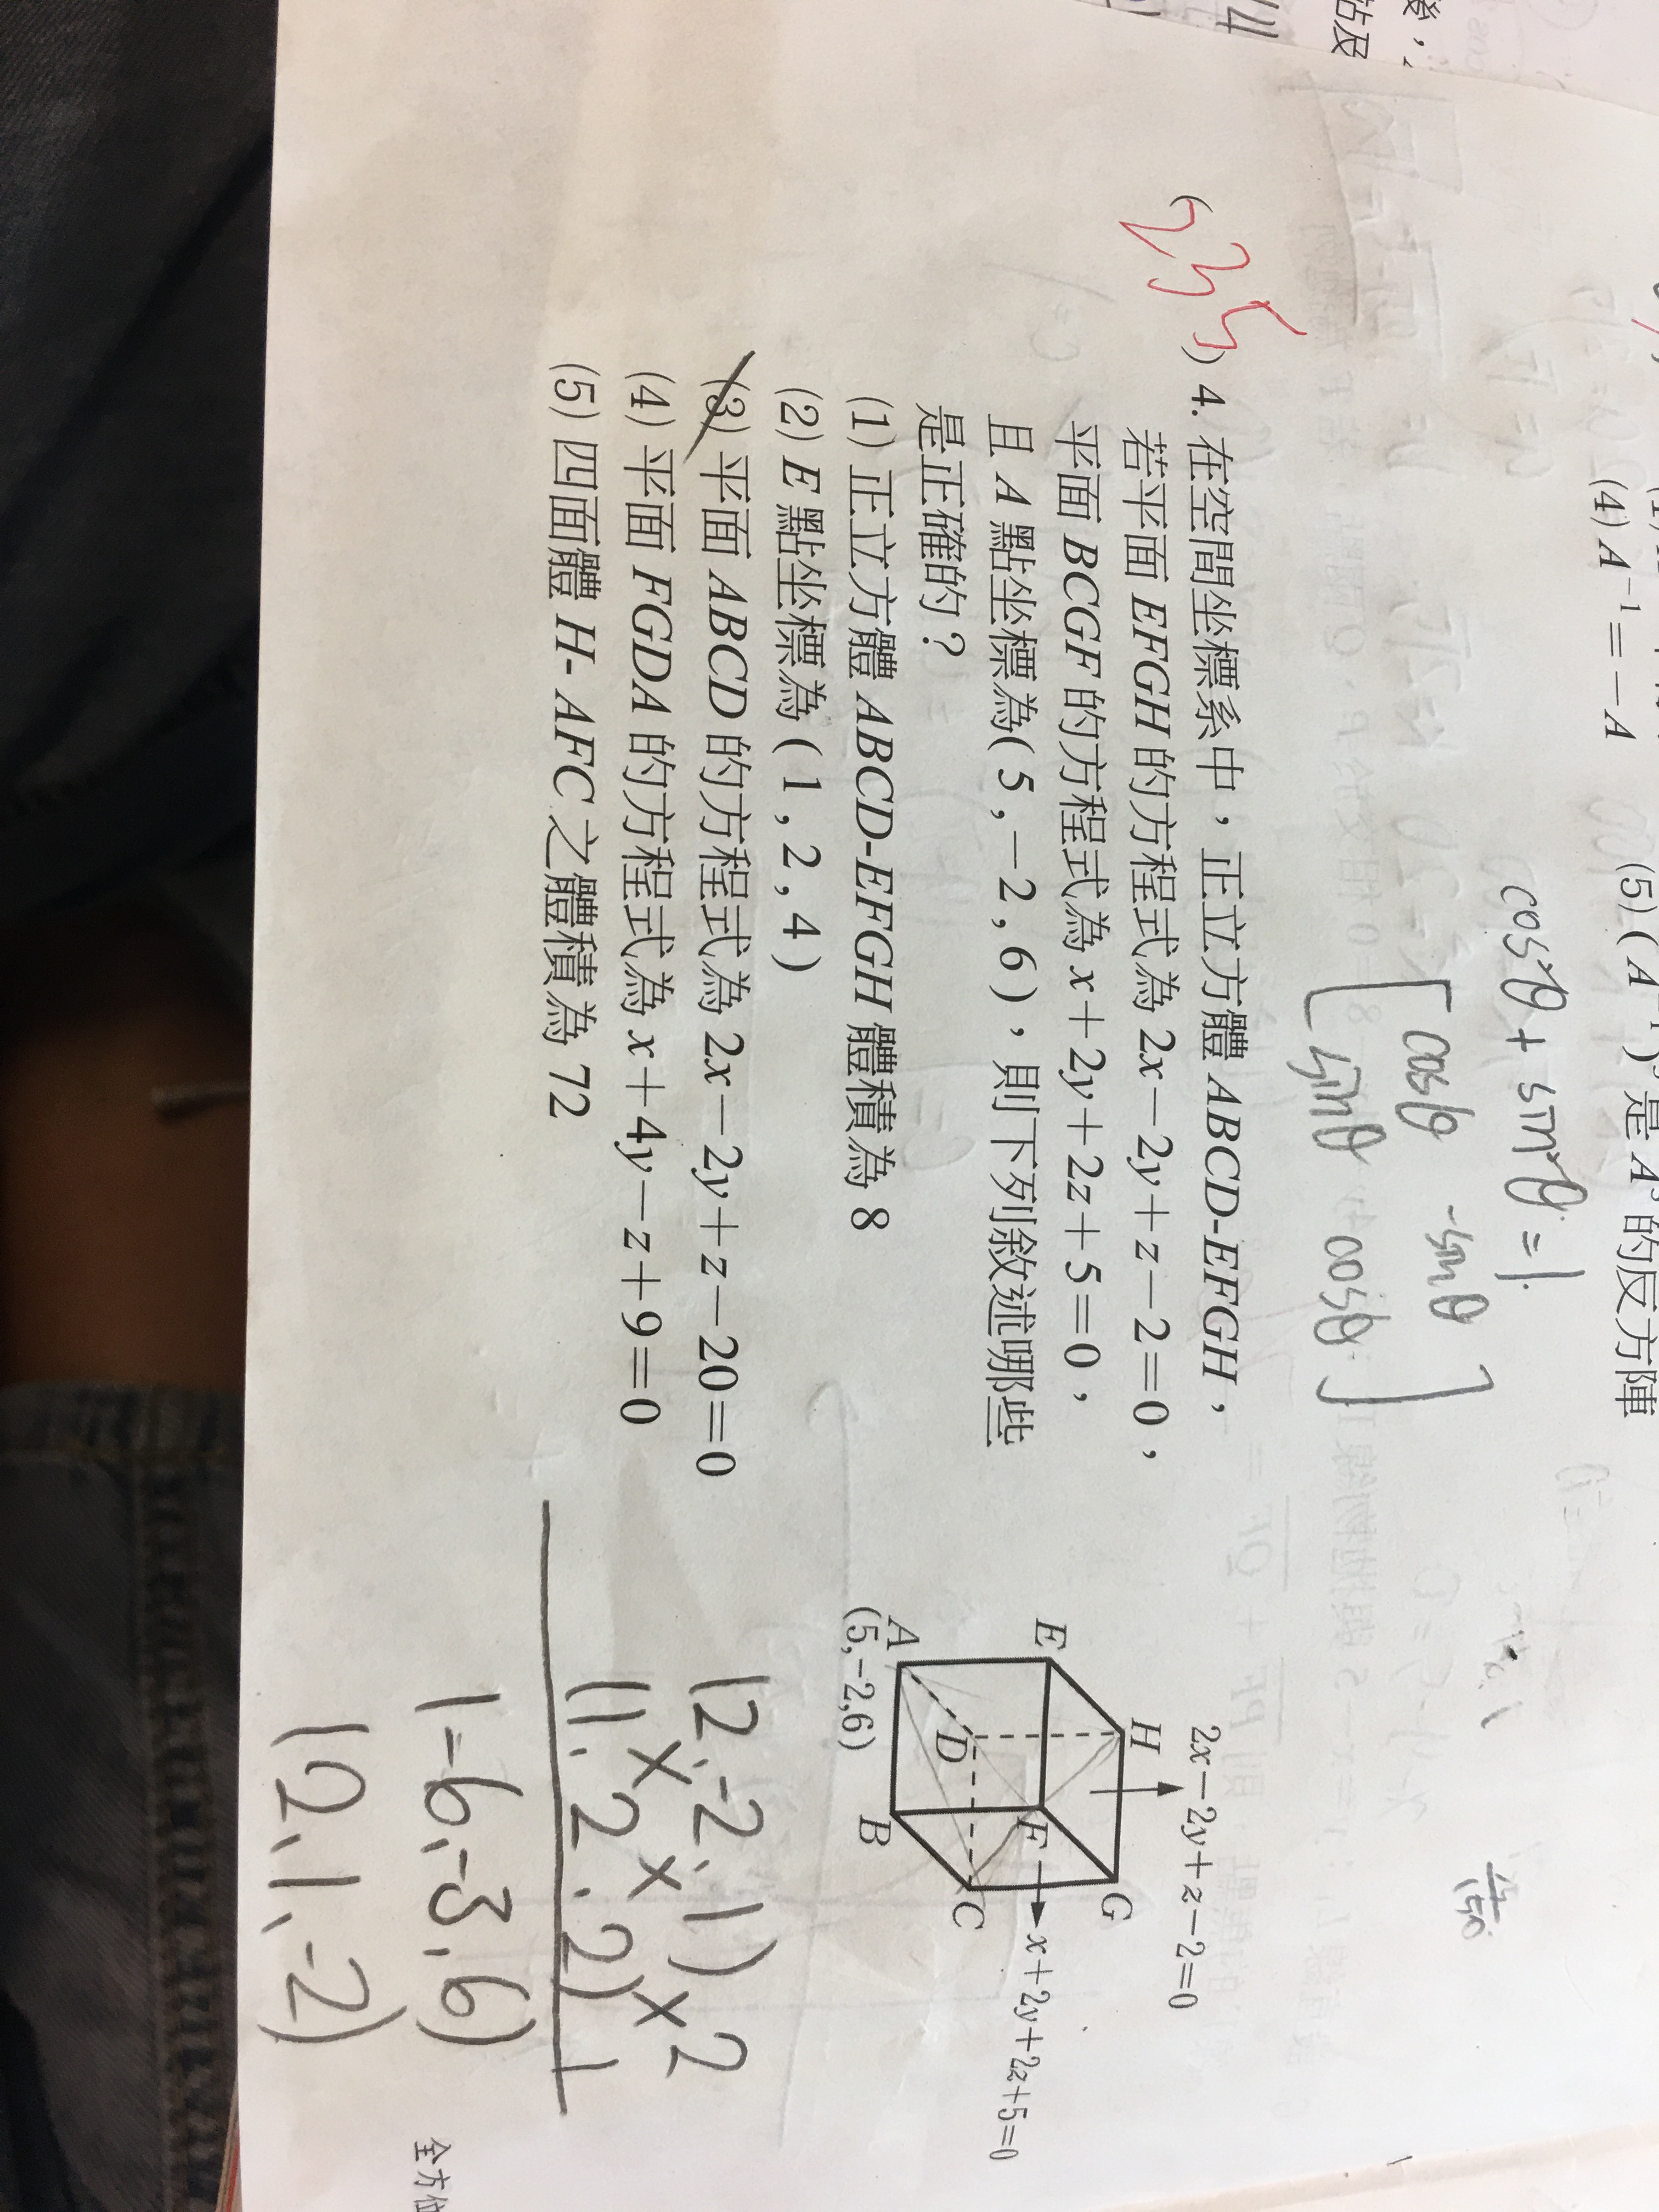 後，
估及
(4) A⁻¹＝－A
是 A³ 的反方陣
cos²θ + sin²θ = 1.
[cosθ -sinθ
sinθ cosθ]
(235) 4. 在空間坐標系中，正立方體 ABCD-EFGH，
若平面 EFGH 的方程式為 2x－2y＋z－2＝0，
平面 BCGF 的方程式為 x＋2y＋2z＋5＝0，
且 A 點坐標為(5,－2,6)，則下列敘述哪些
是正確的？
(1) 正立方體 ABCD-EFGH 體積為 8
(2) E 點坐標為(1,2,4)
(3) 平面 ABCD 的方程式為 2x－2y＋z－20＝0
(4) 平面 FGDA 的方程式為 x＋4y－z＋9＝0
(5) 四面體 H-AFC 之體積為 72
2x－2y＋z－2＝0
H
G
E
F
x＋2y＋2z＋5＝0
D
C
A
B
(5,－2,6)
(2,-2,1)×2
× ×
(1,2,2)
(-6,-3,6)
(2,1,-2)
全方位